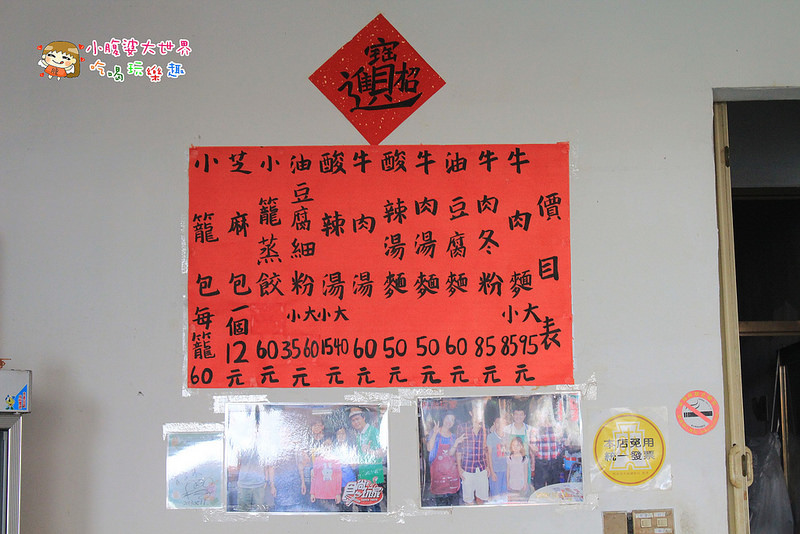 小腹婆大世界
吃喝玩樂趣
招財進寶
價目表
牛肉麵 小大 8595元
牛肉冬粉 85元
油豆腐麵 60元
牛肉湯麵 50元
酸辣湯麵 50元
牛肉湯 60元
酸辣湯 小大 1540元
油豆腐細粉 小大 3560元
小籠蒸餃 60元
芝麻包一個 12元
小籠包每籠 60
食尚玩家
本店免用
統一發票